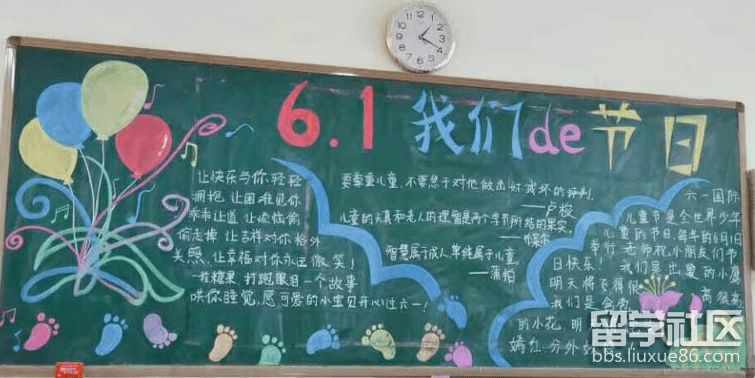 6.1 我们de节日
让快乐与你轻轻
拥抱,让困难见你
乖乖让道,让烦恼
偷走掉,让吉祥对你格外
关照,让幸福对你永远微笑!
一粒糖果,打跑眼泪,一个故事
哄你睡觉,愿可爱的小宝贝开心过六一!
要尊重儿童,不要急于对他做出好或坏的评判.
——卢梭
儿童的天真和老人的理智是两个季节所结的果实.
智慧属于成人,单纯属于儿童
——蒲柏
六一国际
儿童节是全世界少年
儿童的节日,每年的6月1日
举行.老师祝小朋友们节
日快乐!我们是出巢的小鹰
明天将飞得很高很高
我们是含苞
的小花,明
嫣红分外
留学社区
bbs.liuxue86.com